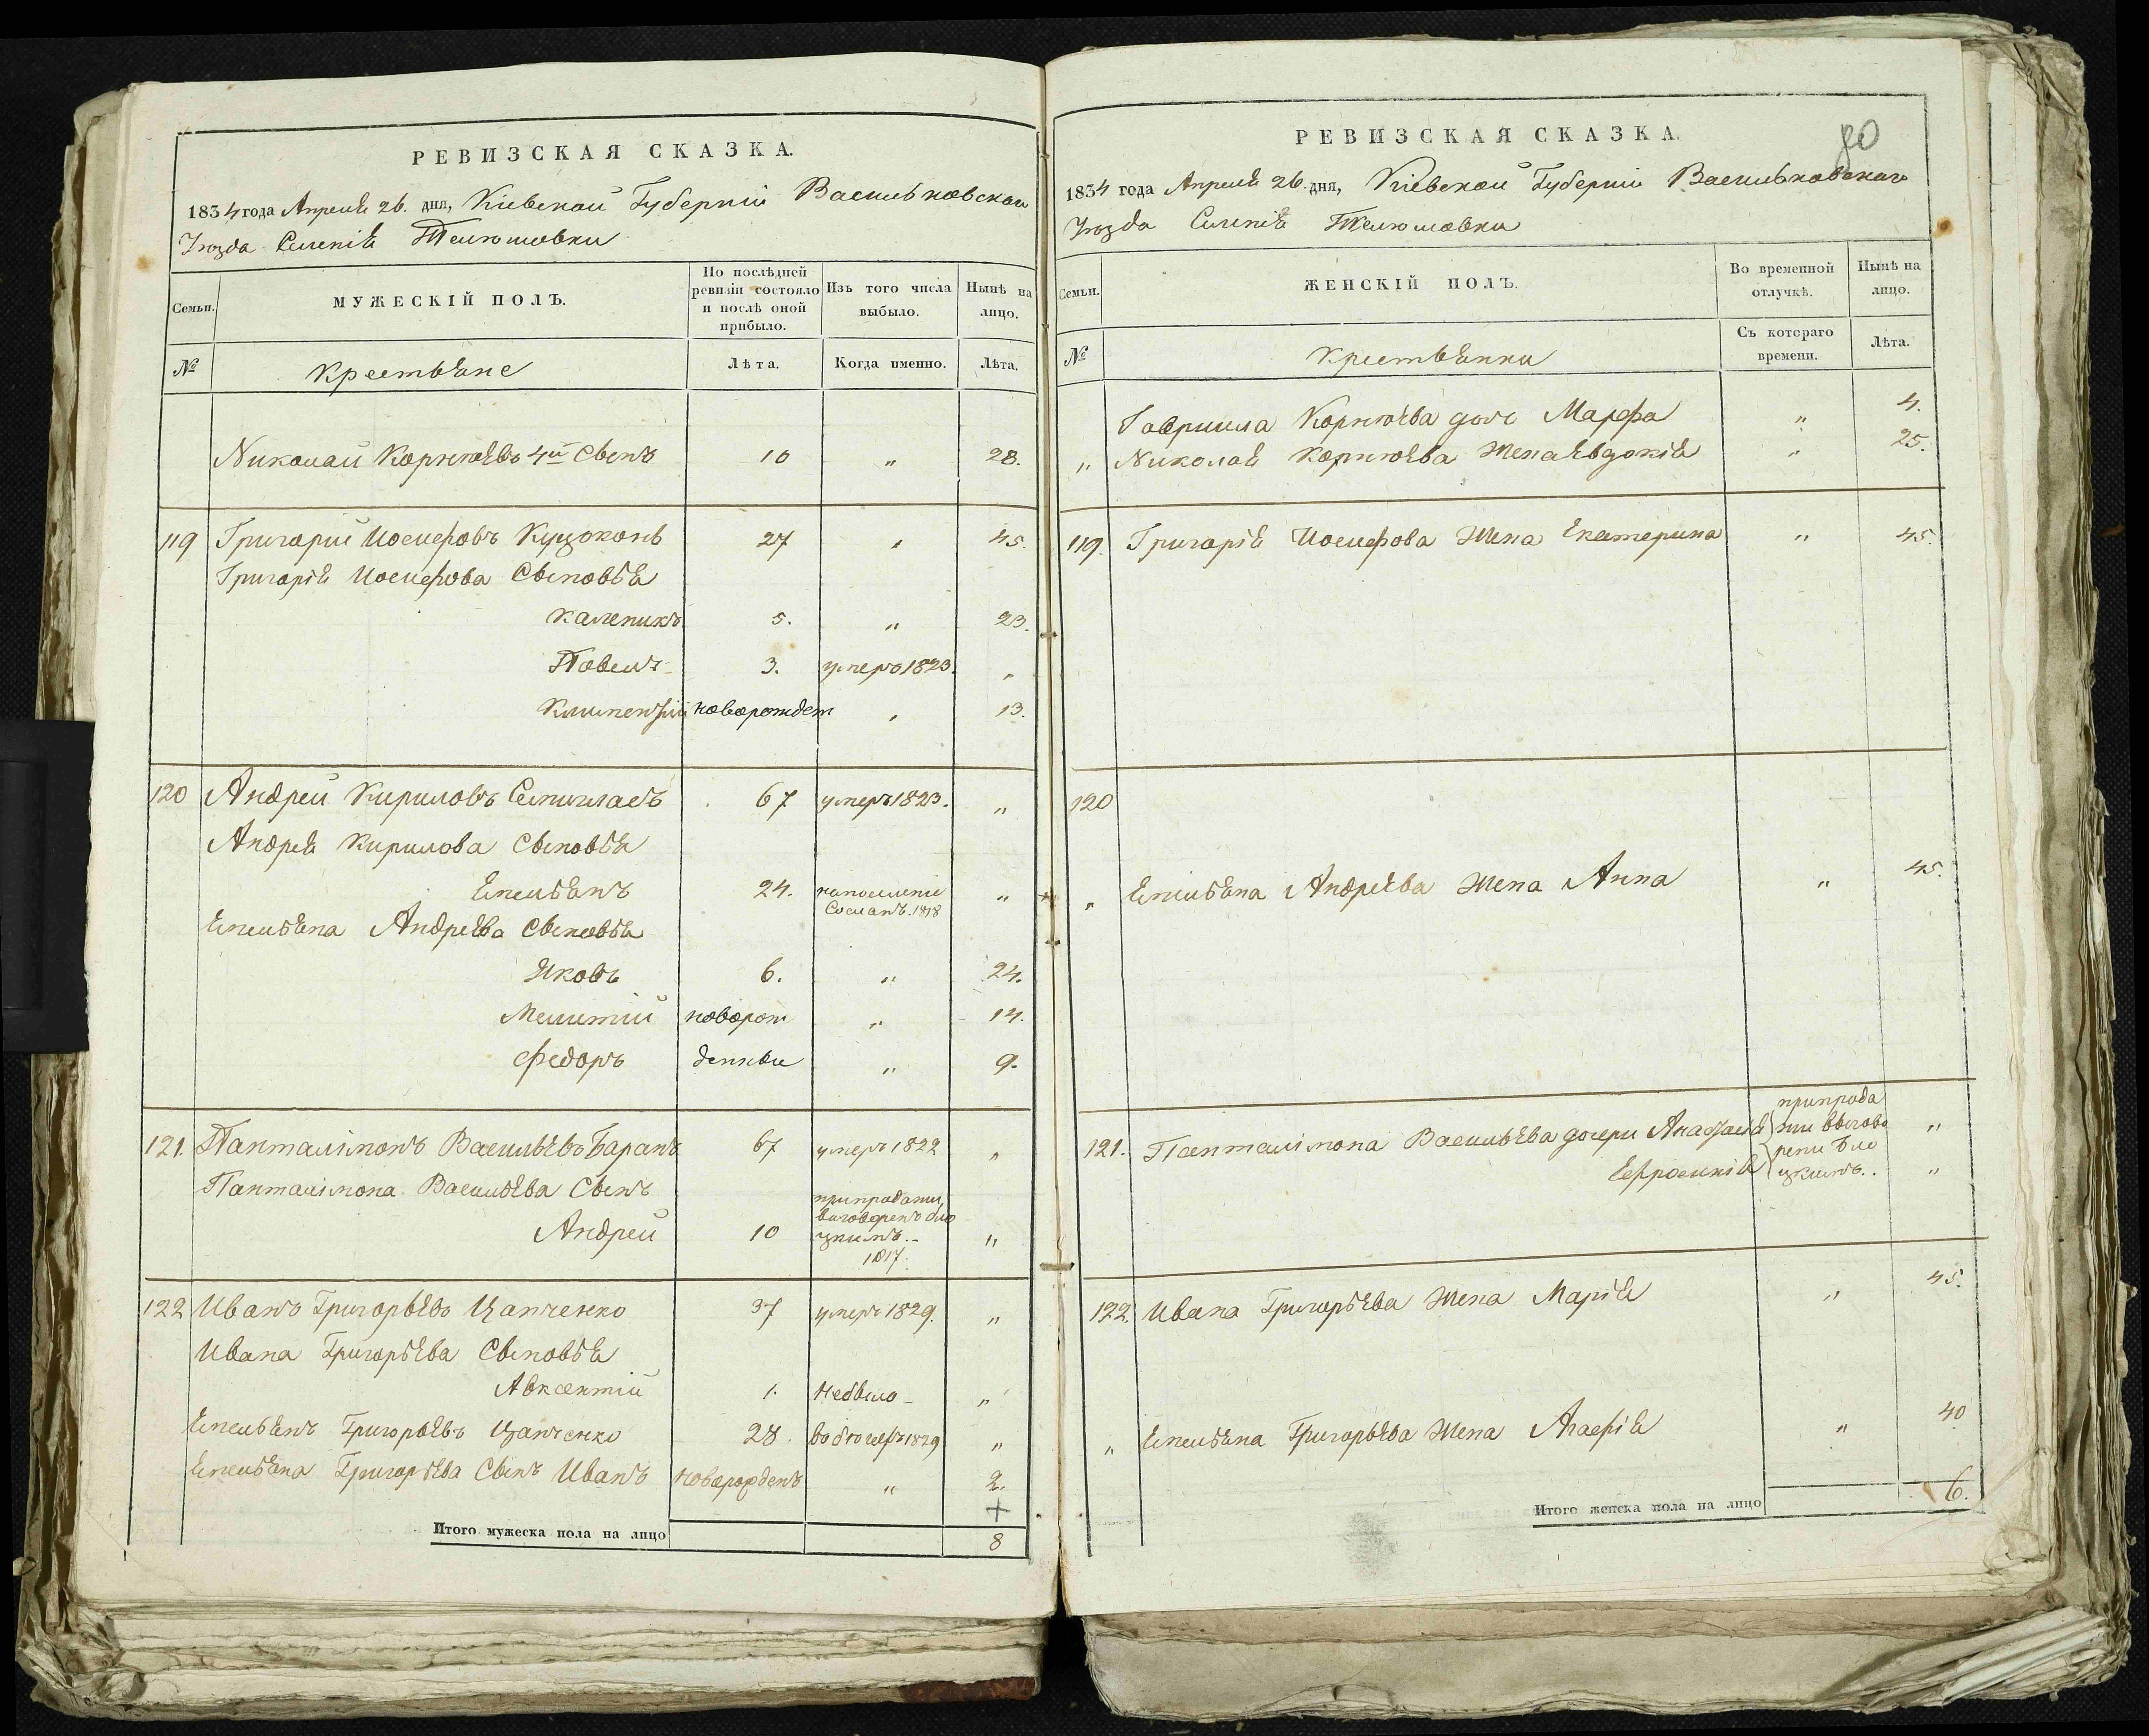 РЕВИЗСКАЯ СКАЗКА.
1834 года Апреля 26. дня, Кіевской Губерніи Васильковскаго
Уѣзда Селенія
МУЖЕСКІЙ ПОЛЪ.
Семьи.
По послѣдней ревизіи состояло и послѣ оной прибыло.
Изъ того числа выбыло.
Нынѣ на лицо.
№
Крестьяне
Лѣта.
Когда именно.
Лѣта.
Николай Корнѣевъ 4й Сынъ 10 „ 28.
119 Григорій Иосифовъ 27 „ 45.
Григорія Иосифова Сыновья
Каленикъ 5. „ 23.
Павелъ 3. умеръ 1823. „
новорожден „ 13.
120 Андрей Кириловъ 67 умеръ 1823. „
Андрея Кирилова Сыновья
Емельянъ 24. на поселеніе „
Сосланъ. 1818
Емельяна Андреева Сыновья
Яковъ 6. „ 24.
Мелитій новорож „ 14.
Федоръ денные „ 9.
121. Панталімонъ Васильевъ Баранъ 67 умеръ 1822 „
Панталімона Васильева Сынъ
Андрей 10 при продажи „
1817.
122 Иванъ Григорьевъ Цапченко 37 умеръ 1829. „
Ивана Григорьева Сыновья
Авксентій 1. Небыло „
Емельянъ Григорьевъ Цапченко 28. 1829 „
Емельяна Григорьева Сынъ Иванъ новорожденъ „ 2.
+
Итого мужеска пола на лицо 8
РЕВИЗСКАЯ СКАЗКА. 80
1834 года Апреля 26. дня, Кіевской Губерніи Васильковскаго
Уѣзда Селенія
Семьи.
ЖЕНСКІЙ ПОЛЪ.
Во временной отлучкѣ.
Нынѣ на лицо.
№
Крестьянки
Съ котораго времени.
Лѣта.
Гавриила Корнѣева дочь Марфа „ 4.
„ Николая Корнѣева Жена Евдокія „ 25.
119. Григорія Иосифова Жена Екатерина „ 45.
120
„ Емельяна Андреева Жена Анна „ 45.
121. Панталімона Васильева дочери „
Ефросинія „
122. Ивана Григорьева Жена Марія „ 45.
„ Емельяна Григорьева Жена Агафія „ 40
Итого женска пола на лицо 6.